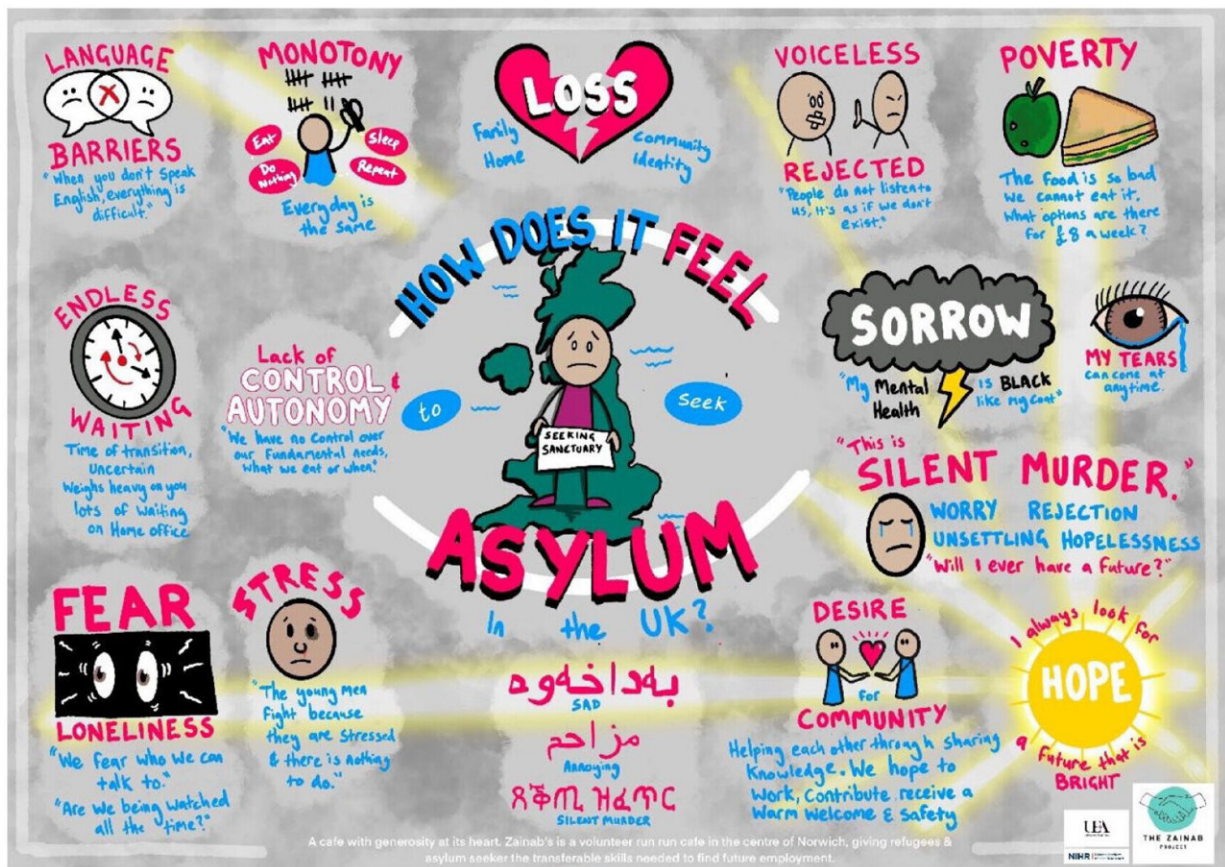 LANGUAGE
BARRIERS
"When you don't speak
English, everything is
difficult."
MONOTONY
Eat
Sleep
Do
Nothing
Repeat
Everyday is
the same
LOSS
Family
Home
Community
Identity
VOICELESS
REJECTED
"People do not listen to
us, it's as if we don't
exist."
POVERTY
The food is so bad
We cannot eat it.
What options are there
for £8 a week?
HOW DOES IT FEEL
to
seek
SEEKING
SANCTUARY
ASYLUM
In the UK?
ENDLESS
WAITING
Time of transition,
Uncertain
Weighs heavy on you
lots of waiting
on Home office
Lack of
CONTROL &
AUTONOMY
"We have no control over
our fundamental needs,
what we eat or when."
SORROW
"My Mental
Health
is BLACK
like my coat"
MY TEARS
can come at
anytime.
"This is
SILENT MURDER."
WORRY REJECTION
UNSETTLING HOPELESSNESS
"Will I ever have a future?"
FEAR
LONELINESS
"We fear who we can
talk to."
"Are we being watched
all the time?"
STRESS
"The young men
fight because
they are stressed
& there is nothing
to do."
بەداخەوە
SAD
مزاحم
Annoying
SILENT MURDER
DESIRE
for
COMMUNITY
Helping each other through sharing
knowledge. We hope to
work, contribute, receive a
warm welcome & safety
I always look for
HOPE
a future that is
BRIGHT
A cafe with generosity at its heart. Zainab's is a volunteer run run cafe in the centre of Norwich, giving refugees &
asylum seeker the transferable skills needed to find future employment.
UEA
NIHR
THE ZAINAB
PROJECT